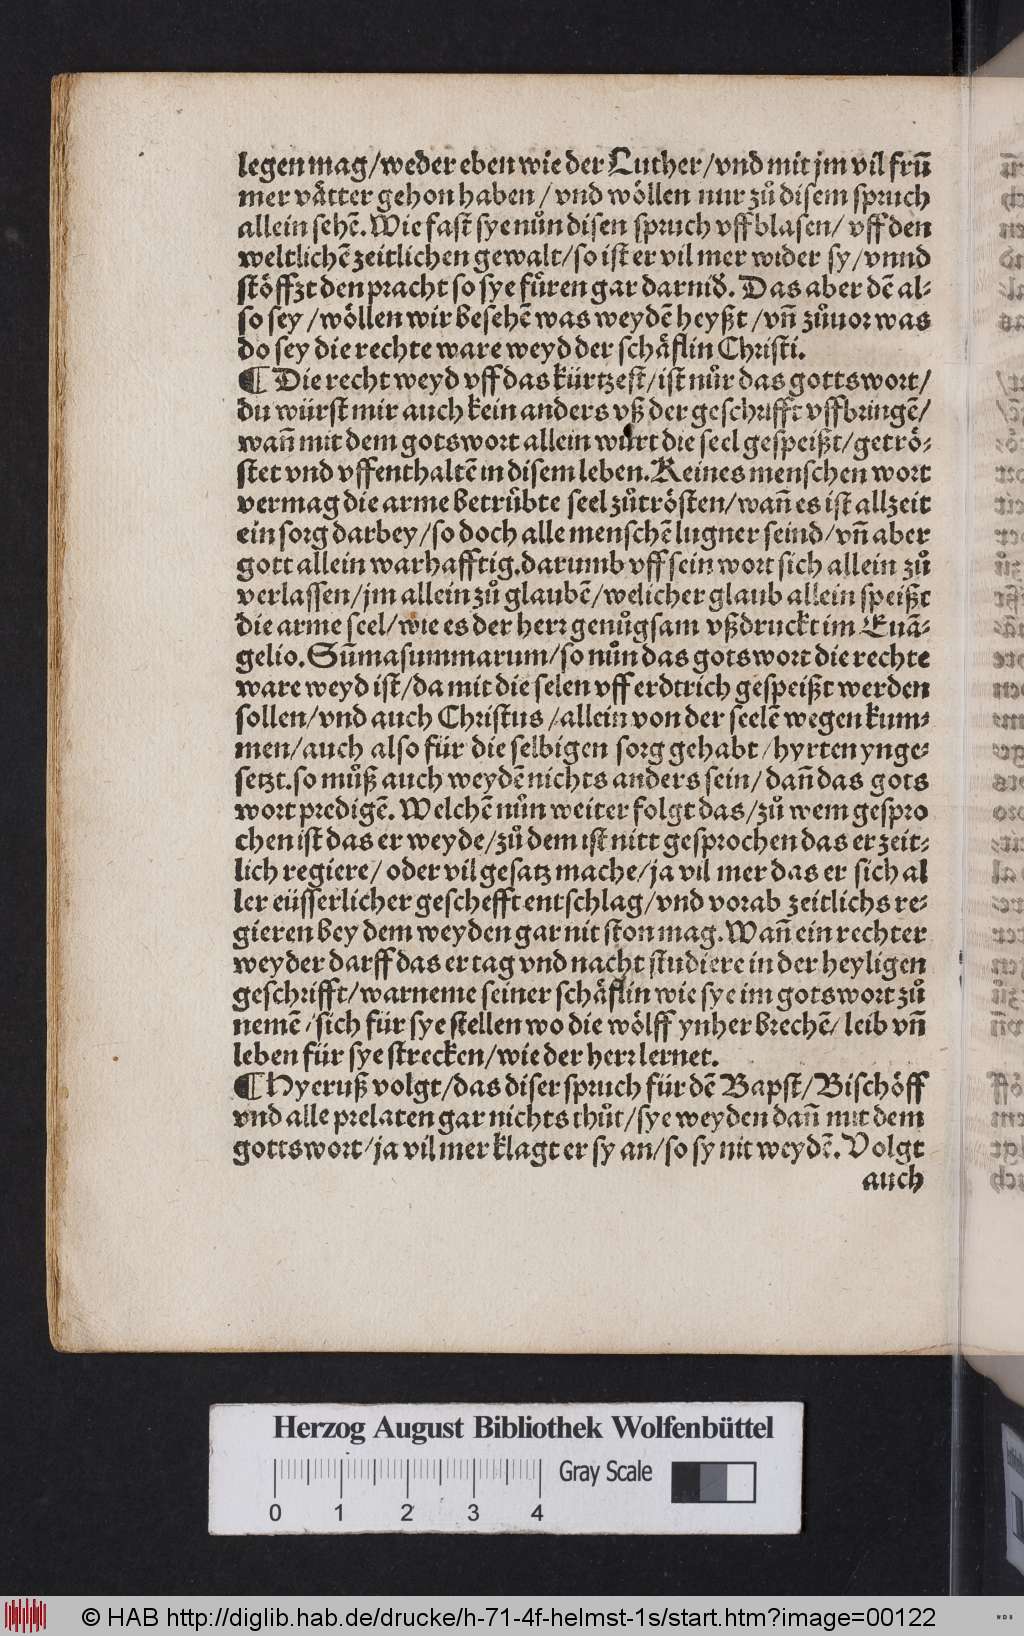 legen mag/weder eben wie der Luther/vnd mit jm vil frū
mer vätter gehon haben / vnd wöllen nur zů disem spruch
allein sehē. Wie fast sye nůn disen spruch vffblasen/ vff den
weltlichē zeitlichen gewalt/so ist er vil mer wider sy/vnnd
stöffzt den pracht so sye fůren gar darnid. Das aber dē al⸗
so sey /wöllen wir besehē was weydē heyßt /vn̄ zůuor was
do sey die rechte ware weyd der schäflin Christi.
¶ Die recht weyd vff das kürtzest/ist nůr das gottswort/
du würst mir auch kein anders vß der geschrifft vffbringē/
wan̄ mit dem gotswort allein würt die seel gespeißt/getrö⸗
stet vnd vffenthaltē in disem leben. Keines menschen wort
vermag die arme betrůbte seel zůtrösten/wan̄ es ist allzeit
ein sorg darbey/so doch alle menschē lugner seind/vn̄ aber
gott allein warhafftig.darumb vff sein wort sich allein zů
verlassen/jm allein zů glaubē/welicher glaub allein speißt
die arme seel/wie es der herr genůgsam vßdruckt im Euā⸗
gelio. Sūmasummarum/so nůn das gotswort die rechte
ware weyd ist/da mit die selen vff erdtrich gespeißt werden
sollen/vnd auch Christus /allein von der seelē wegen kum⸗
men/auch also für die selbigen sorg gehabt /hyrten ynge⸗
setzt.so můß auch weydē nichts anders sein/ dan̄ das gots
wort predigē. Welchē nůn weiter folgt das/zů wem gespro
chen ist das er weyde/zů dem ist nitt gesprochen das er zeit⸗
lich regiere/ oder vil gesatz mache/ja vil mer das er sich al
ler eüsserlicher geschefft entschlag/vnd vorab zeitlichs re⸗
gieren bey dem weyden gar nit ston mag. Wan̄ ein rechter
weyder darff das er tag vnd nacht studiere in der heyligen
geschrifft/warneme seiner schäflin wie sye im gotswort zů
nemē /sich für sye stellen wo die wölff ynher brechē/ leib vn̄
leben für sye strecken/wie der herr lernet.
¶ Hyeruß volgt/das diser spruch für dē Bapst/Bischöff
vnd alle prelaten gar nichts thůt/sye weyden dan̄ mit dem
gottswort/ja vil mer klagt er sy an/so sy nit weydē. Volgt
auch
Herzog August Bibliothek Wolfenbüttel
Gray Scale
0 1 2 3 4
© HAB http://diglib.hab.de/drucke/h-71-4f-helmst-1s/start.htm?image=00122